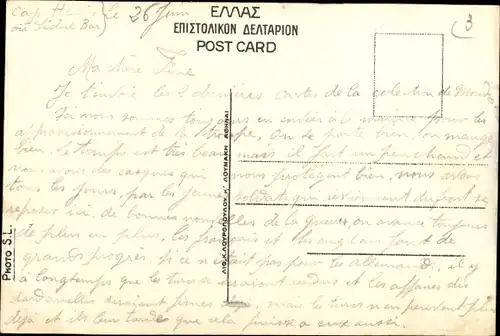 Cap Le 26 Juin
ou Sedul Bar)
3
ΕΛΛΑΣ
ΕΠΙΣΤΟΛΙΚΟΝ ΔΕΛΤΑΡΙΟΝ
POST CARD
Ma chère
Je t'envoie les 2 dernières cartes de la colection de Mondo
Ici nous sommes toujours en à la marine pour les
approvisionnement de la troupe, On se porte bien, on mange
bien. Le temps est très beau mais il fait un peu chaud et
nous avons des casques qui nous protegent bien, nous avons
tous les jours, par les soldats qui reviennent du front se
reposer ici, de bonnes nouvelles de la guerre, on avance toujours
de plus en plus, les français et les anglais font de
grands progrès, si ce n'etait pas pour les allemands, il y
a longtemps que les turcs se seraient rendus et les affaires des
dardanelles seraient mais les turcs n'en peuvent plus
déjà et il leur tarde que cela finisse à eux aussi.
PHOTO S.L.